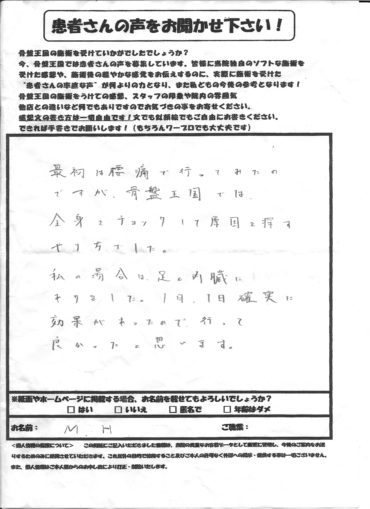 患者さんの声をお聞かせ下さい！
骨盤王国の施術を受けていかがでしたでしょうか？
今、骨盤王国では患者さんの声を募集しています。皆様に当院独自のソフトな施術を
受けた感想や、施術後の軽やかな感覚をお伝えするのに、実際に施術を受けた
"患者さんの率直な声"が何よりの力となり、また私どもの今後の参考となります！
骨盤王国の施術をうけての感想、スタッフの印象や院内の雰囲気
他店との違いなど何でもありですのでお気づきの事をお寄せください。
感想文の書き方は一切自由です！文でも似顔絵でもご自由にお書きください。
できれば手書きでお願いします！（もちろんワープロでも大丈夫です）
最初は腰痛で行ってみたの
ですが、骨盤王国では、
全身をチェックして原因を探す
やり方でした。
私の場合は、足と内臓に
ありました。1日、1日確実に
効果があったので行って
良かったと思います。
※紙面やホームページに掲載する場合、お名前を載せてもよろしいでしょうか？
□ はい □ いいえ □ 匿名で □ 年齢はダメ
お名前： M. H ご職業：